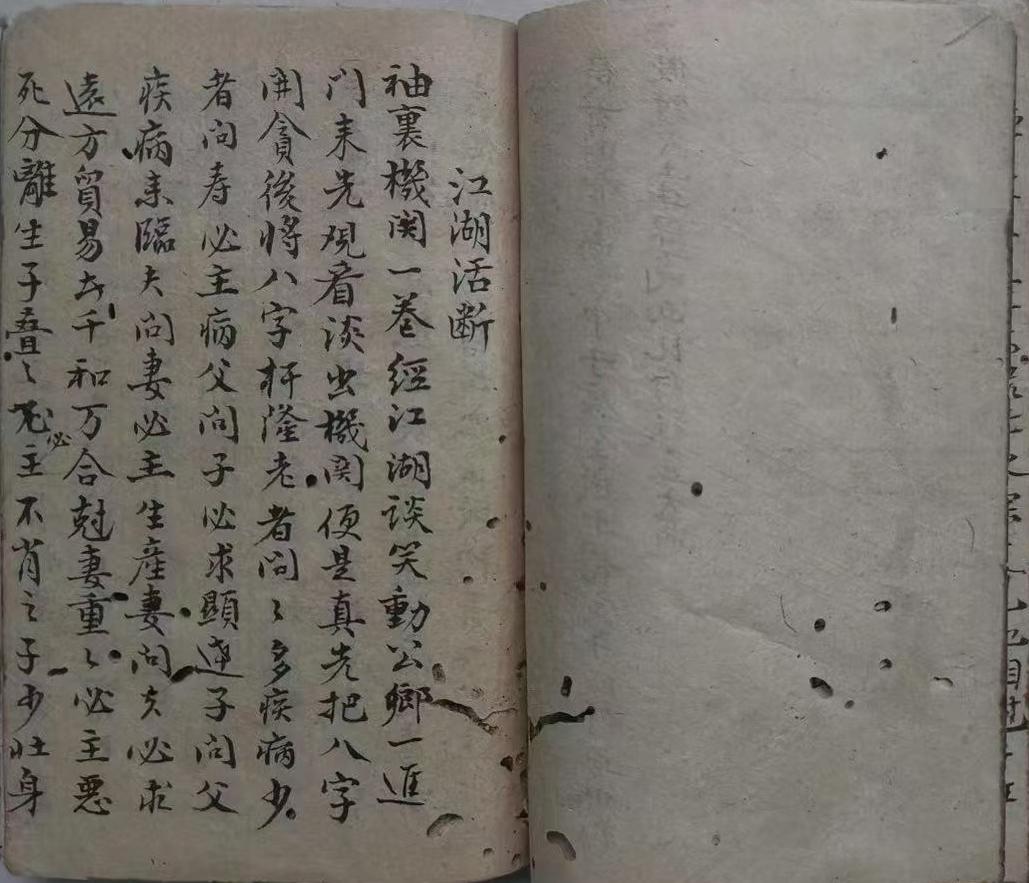 江湖活断
袖裏機関一卷經江湖談笑動公鄉一進
门来先观看淡出機関便是真先把八字
開貪後将八字杆隆老者问〻多疾病少
者问寿必主病父问子必求顯达子问父
疾病来臨夫问妻必主生産妻问夫必求
遠方貿易去千和万合尅妻重〻必主惡
死分離生子叠〻必主不肖之子少壮身